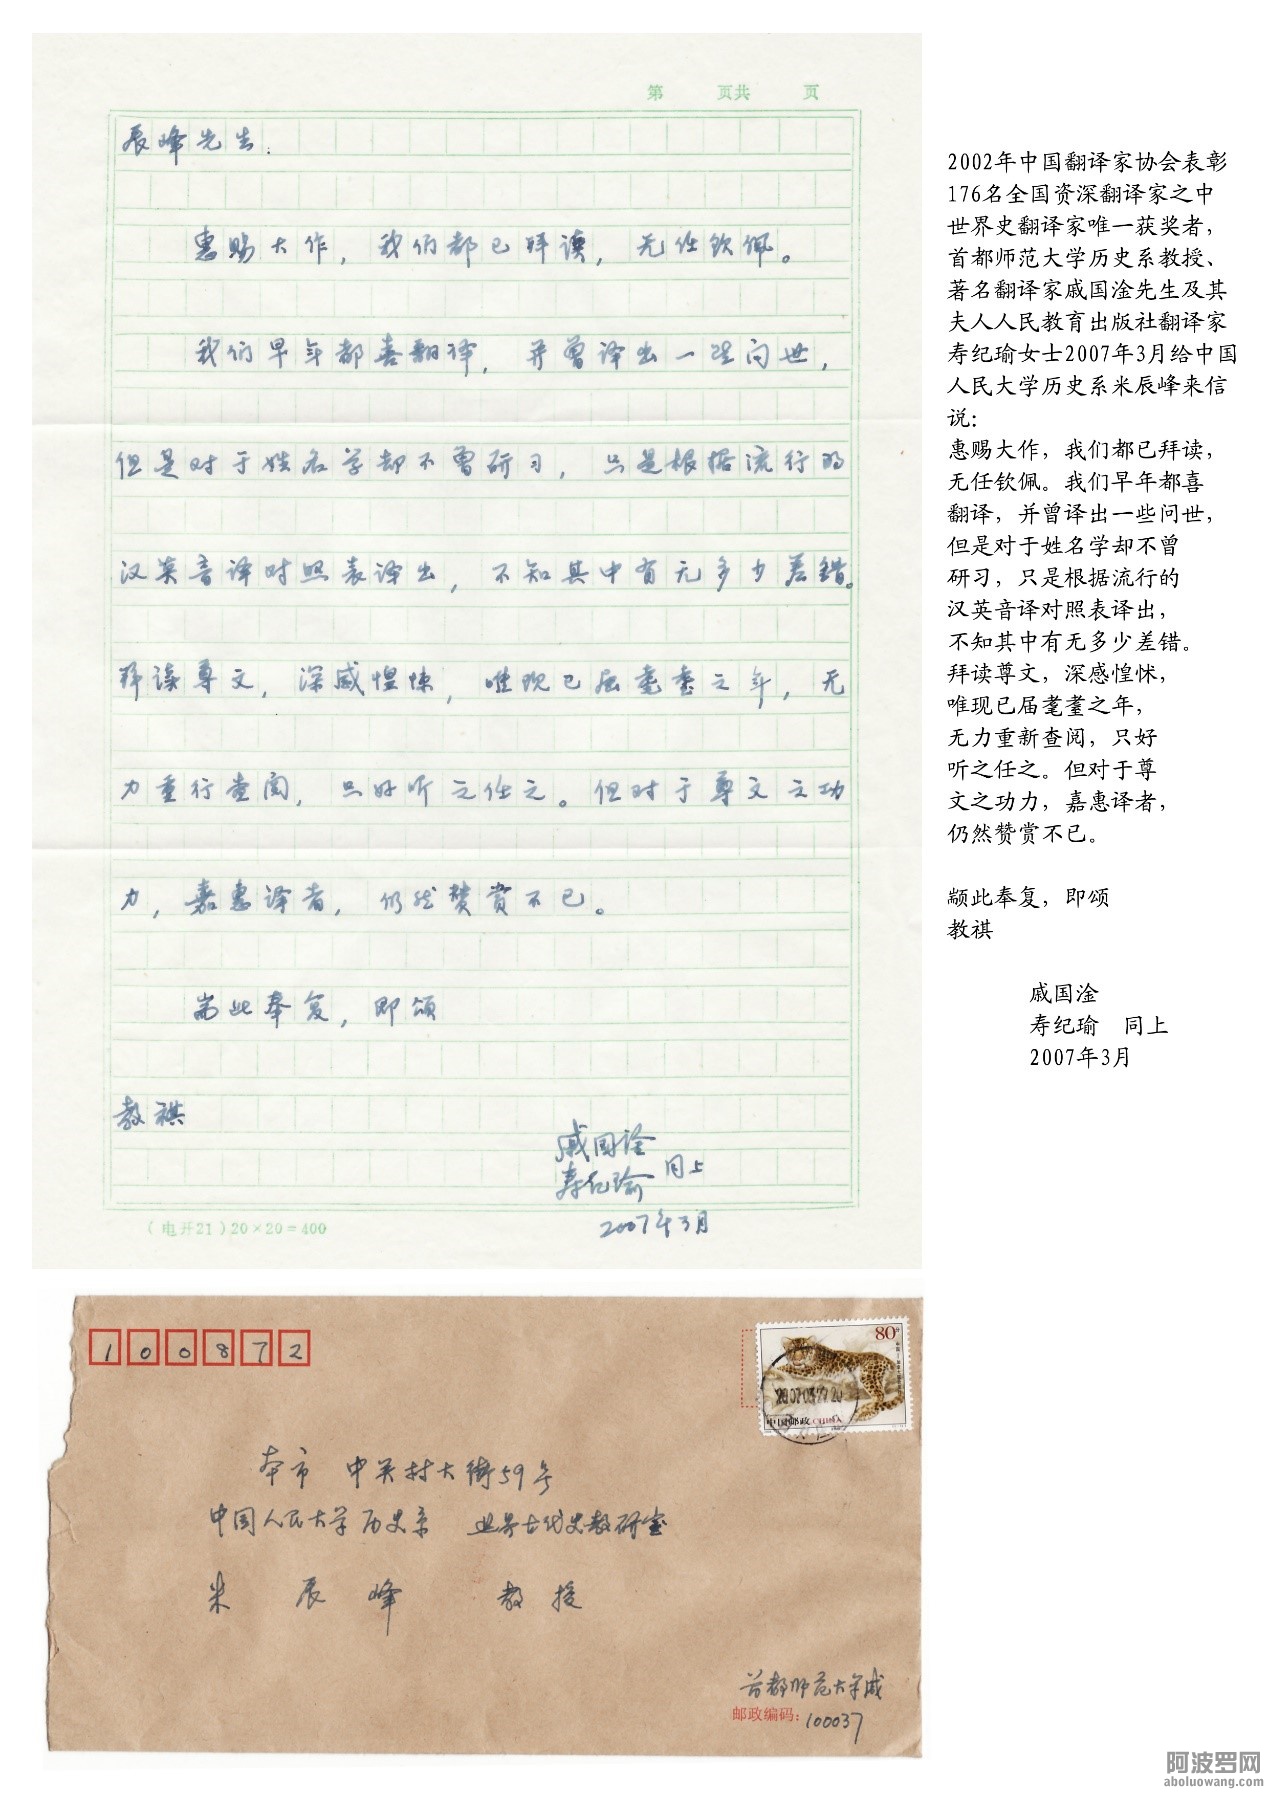 第 页共 页
辰峰先生:
惠赐大作，我们都已拜读，无任钦佩。
我们早年都喜翻译，并曾译出一些问世，
但是对于姓名学却不曾研习，只是根据流行的
汉英音译对照表译出，不知其中有无多少差错。
拜读尊文，深感惶悚，唯现已届耄耋之年，无
力重行查阅，只好听之任之。但对于尊文之功
力，嘉惠译者，仍然赞赏不已。
耑此奉复，即颂
教祺
戚国淦
寿纪瑜 同上
2007年3月
(电开21)20×20=400
2002年中国翻译家协会表彰
176名全国资深翻译家之中
世界史翻译家唯一获奖者，
首都师范大学历史系教授、
著名翻译家戚国淦先生及其
夫人人民教育出版社翻译家
寿纪瑜女士2007年3月给中国
人民大学历史系米辰峰来信
说：
惠赐大作，我们都已拜读，
无任钦佩。我们早年都喜
翻译，并曾译出一些问世，
但是对于姓名学却不曾
研习，只是根据流行的
汉英音译对照表译出，
不知其中有无多少差错。
拜读尊文，深感惶怵，
唯现已届耄耋之年，
无力重新查阅，只好
听之任之。但对于尊
文之功力，嘉惠译者，
仍然赞赏不已。
颛此奉复，即颂
教祺
戚国淦
寿纪瑜 同上
2007年3月
100872
80分
中国邮政 CHINA
本市 中关村大街59号
中国人民大学历史系 世界古代史教研室
米辰峰 教授
首都师范大学戚
邮政编码：100037
阿波罗网
aboluowang.com